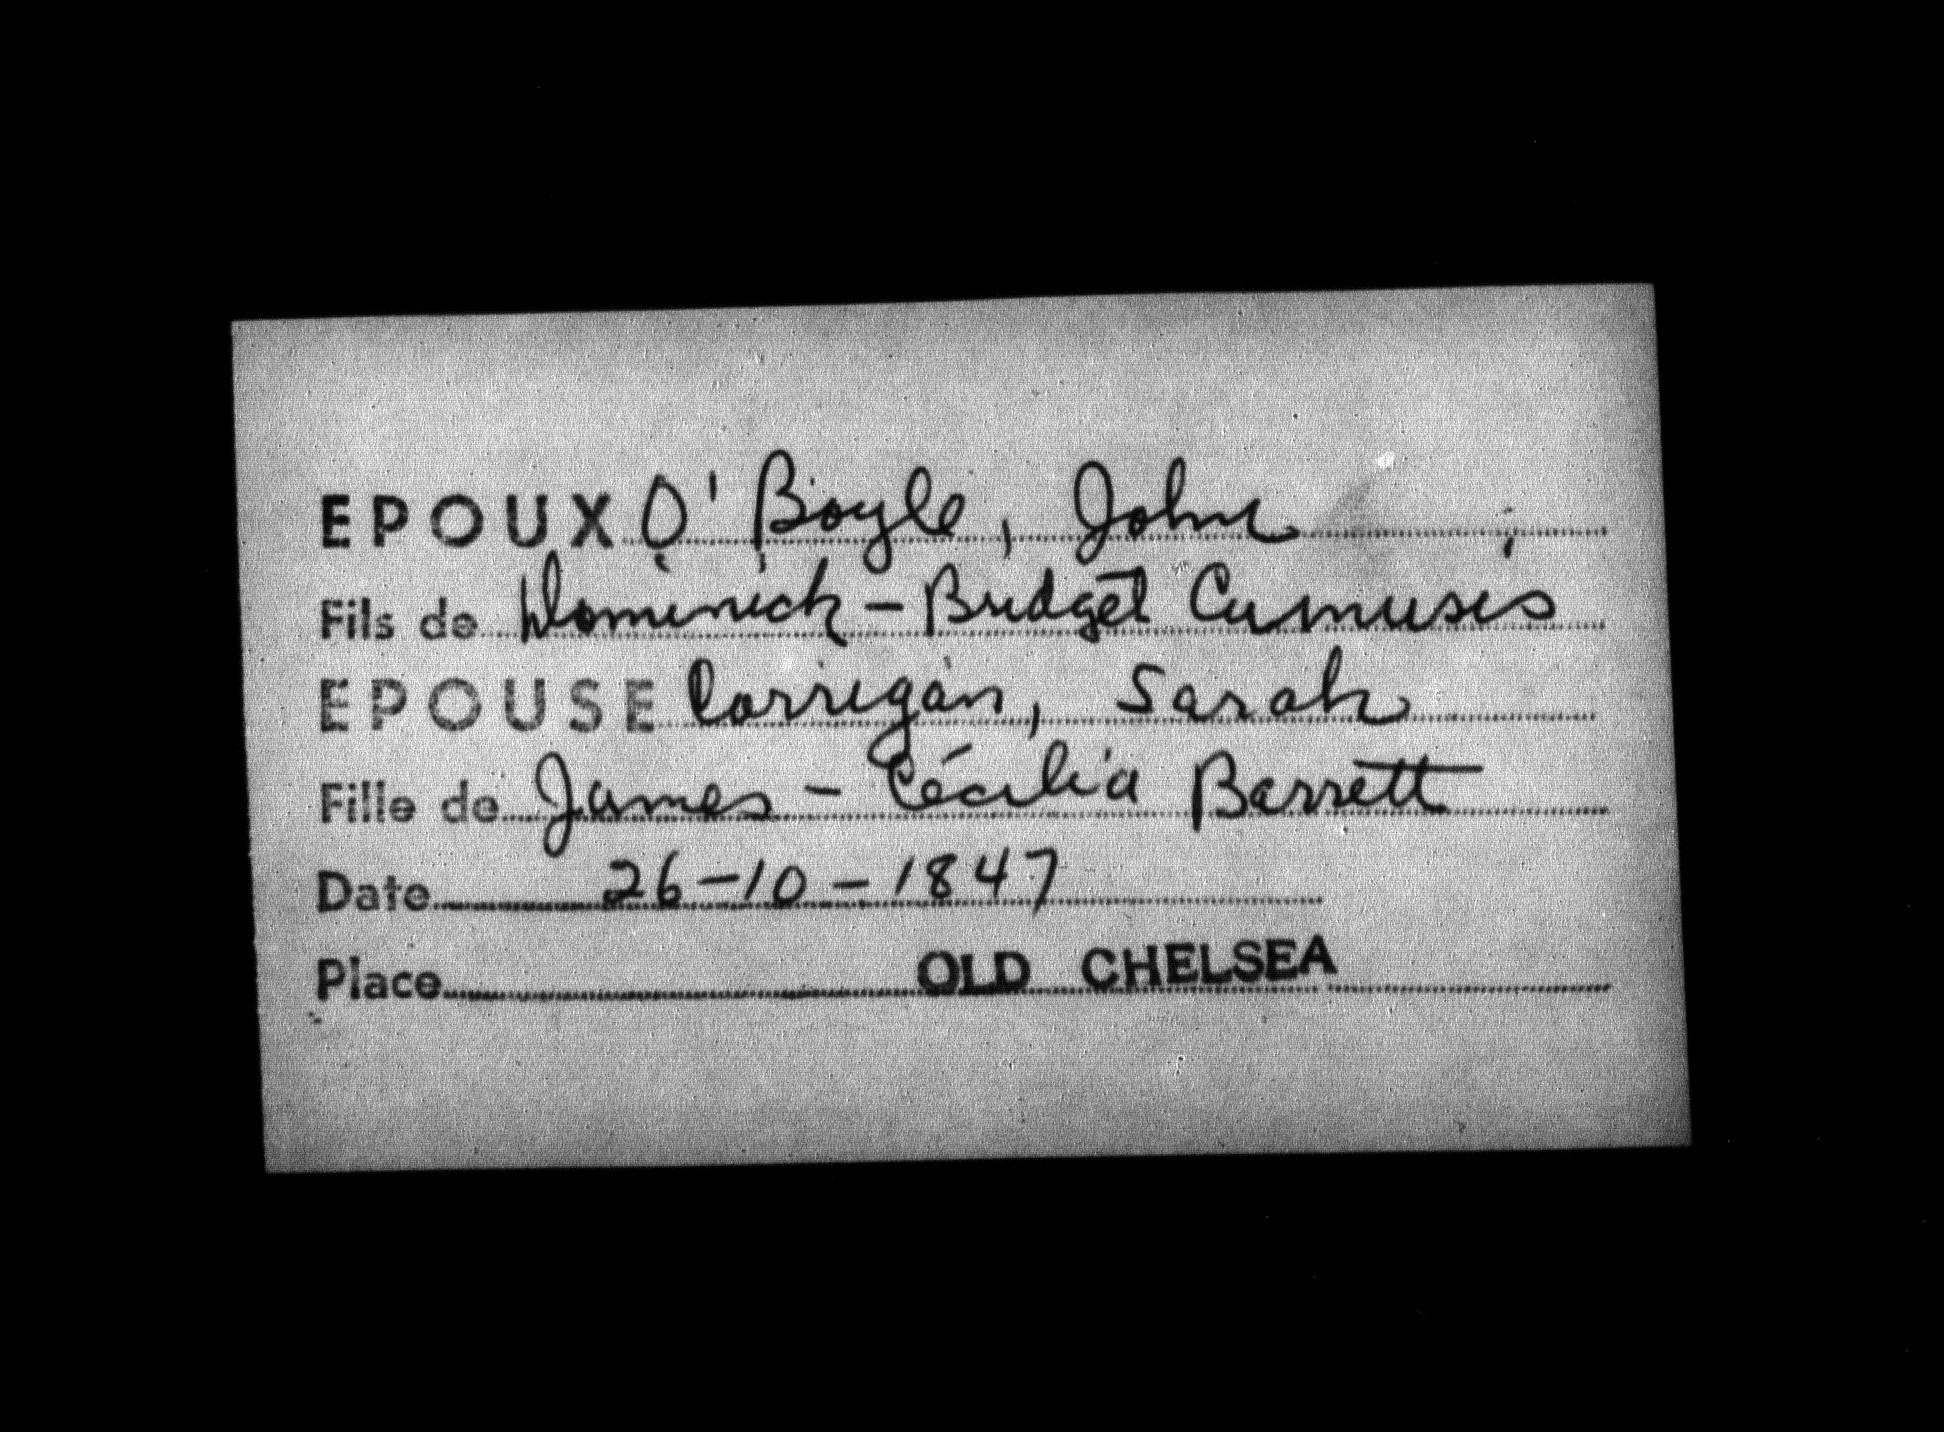 EPOUX O' Boyle, John
Fils de Dominick - Bridget Cumusis
EPOUSE Corrigan, Sarah
Fille de James - Cécilia Barrett
Date 26-10-1847
Place OLD CHELSEA